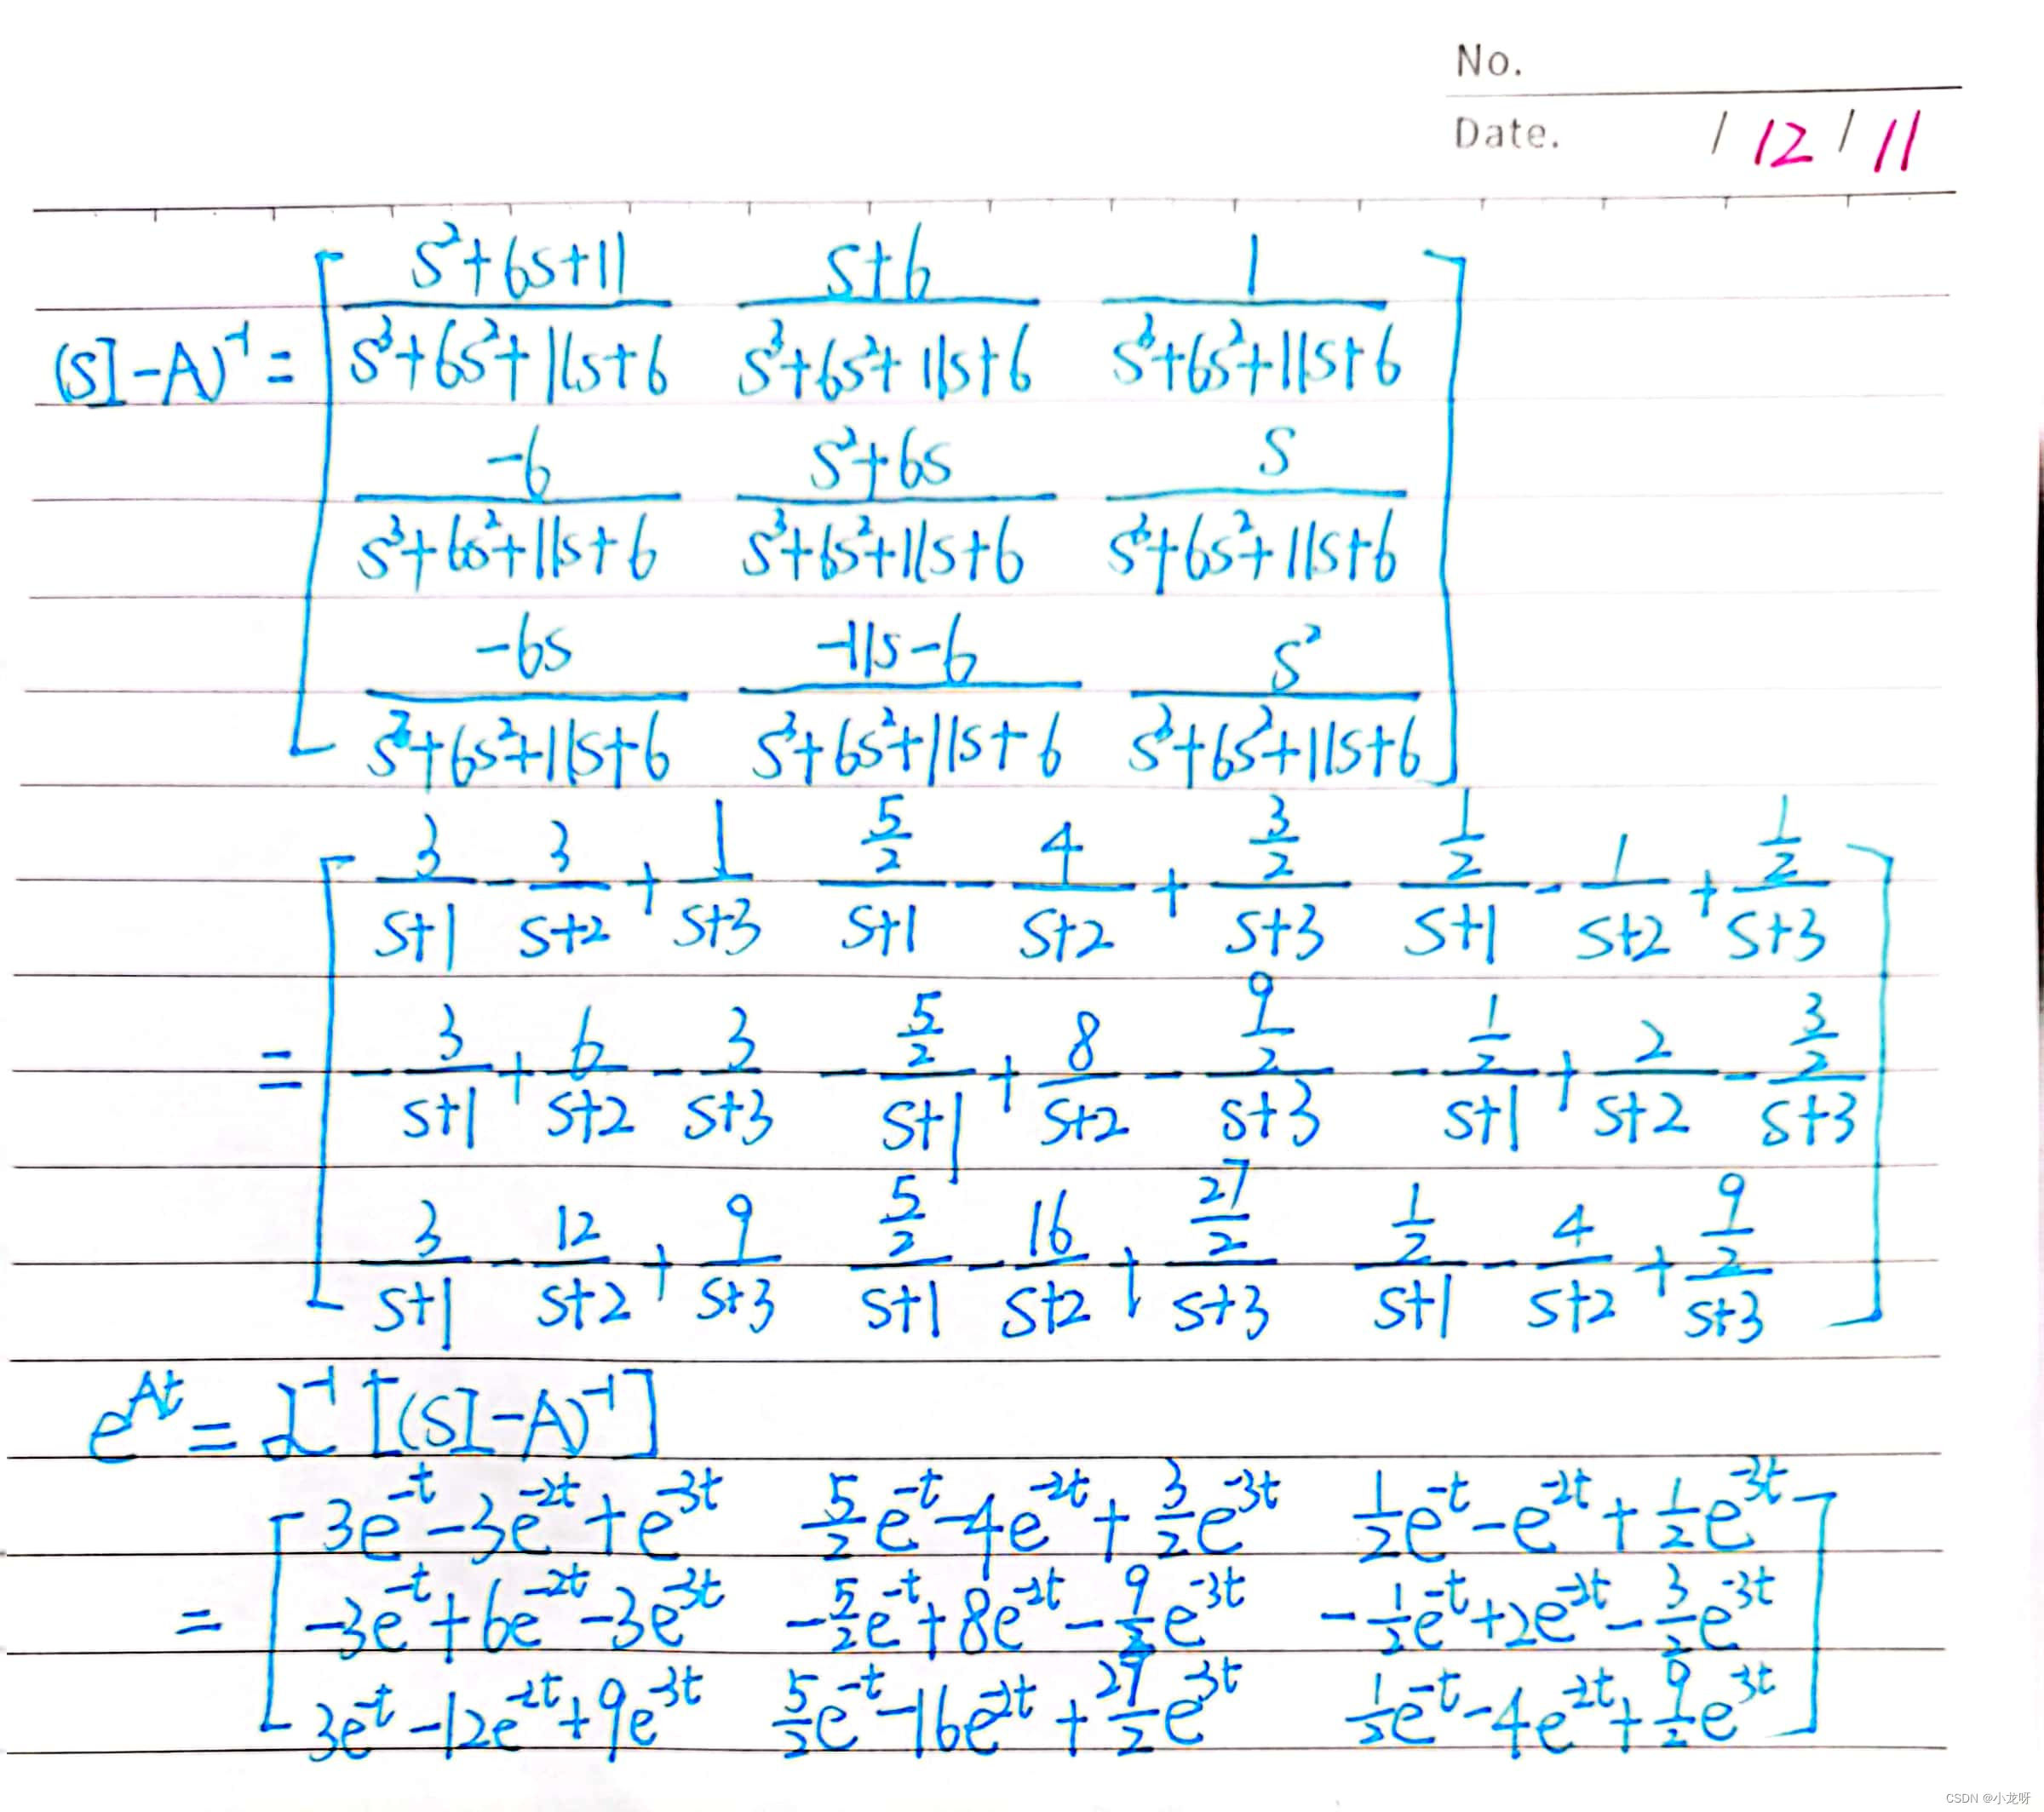 No.
Date. / 12 / 11
(SI-A)⁻¹ = [ (s²+6s+11)/(s³+6s²+11s+6) (s+6)/(s³+6s²+11s+6) 1/(s³+6s²+11s+6)
-6/(s³+6s²+11s+6) (s²+6s)/(s³+6s²+11s+6) s/(s³+6s²+11s+6)
-6s/(s³+6s²+11s+6) (-11s-6)/(s³+6s²+11s+6) s²/(s³+6s²+11s+6) ]
= [ 3/(s+1) - 3/(s+2) + 1/(s+3) (5/2)/(s+1) - 4/(s+2) + (3/2)/(s+3) (1/2)/(s+1) - 1/(s+2) + (1/2)/(s+3)
-3/(s+1) + 6/(s+2) - 3/(s+3) -(5/2)/(s+1) + 8/(s+2) - (9/2)/(s+3) -(1/2)/(s+1) + 2/(s+2) - (3/2)/(s+3)
3/(s+1) - 12/(s+2) + 9/(s+3) (5/2)/(s+1) - 16/(s+2) + (27/2)/(s+3) (1/2)/(s+1) - 4/(s+2) + (9/2)/(s+3) ]
e^At = L⁻¹[(SI-A)⁻¹]
= [ 3e^-t - 3e^-2t + e^-3t 5/2e^-t - 4e^-2t + 3/2e^-3t 1/2e^-t - e^-2t + 1/2e^-3t
-3e^-t + 6e^-2t - 3e^-3t -5/2e^-t + 8e^-2t - 9/2e^-3t -1/2e^-t + 2e^-2t - 3/2e^-3t
3e^-t - 12e^-2t + 9e^-3t 5/2e^-t - 16e^-2t + 27/2e^-3t 1/2e^-t - 4e^-2t + 9/2e^-3t ]
CSDN @小龙呀